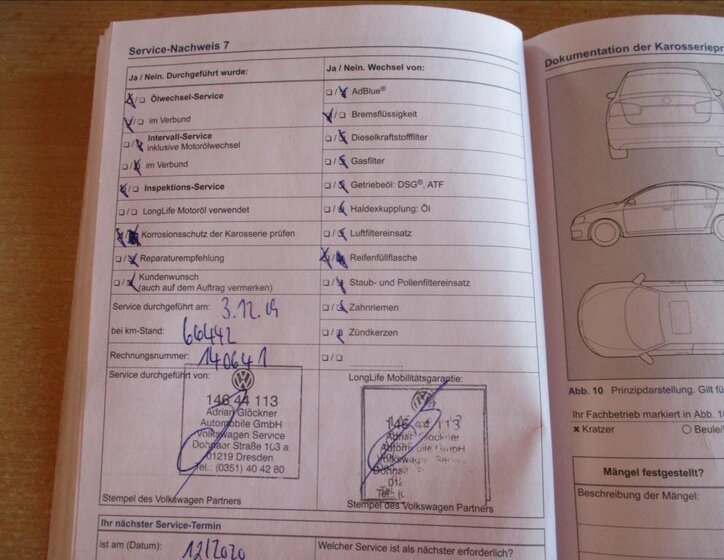 Service-Nachweis 7
Ja / Nein. Durchgeführt wurde:
Ölwechsel-Service
im Verbund
Intervall-Service
inklusive Motorölwechsel
im Verbund
Inspektions-Service
LongLife Motoröl verwendet
Korrosionsschutz der Karosserie prüfen
Reparaturempfehlung
Kundenwunsch
(auch auf dem Auftrag vermerken)
Service durchgeführt am: 3.12.19
bei km-Stand: 66442
Rechnungsnummer: 140641
Service durchgeführt von:
146 44 113
Adrian Glöckner
Automobile GmbH
Volkswagen Service
Dohnaer Straße 103 a
01219 Dresden
Tel.: (0351) 40 42 80
Stempel des Volkswagen Partners
Ja / Nein. Wechsel von:
AdBlue®
Bremsflüssigkeit
Dieselkraftstofffilter
Gasfilter
Getriebeöl: DSG®, ATF
Haldexkupplung: Öl
Luftfiltereinsatz
Reifenfüllflasche
Staub- und Pollenfiltereinsatz
Zahnriemen
Zündkerzen
LongLife Mobilitätsgarantie:
113
Adrian Glöckner
GmbH
Stempel des Volkswagen Partners
Ihr nächster Service-Termin
ist am (Datum): 12/2020
Welcher Service ist als nächster erforderlich?
Dokumentation der Karosseriepr
Abb. 10 Prinzipdarstellung. Gilt fü
Ihr Fachbetrieb markiert in Abb. 10
× Kratzer
Beule/
Mängel festgestellt?
Beschreibung der Mängel: